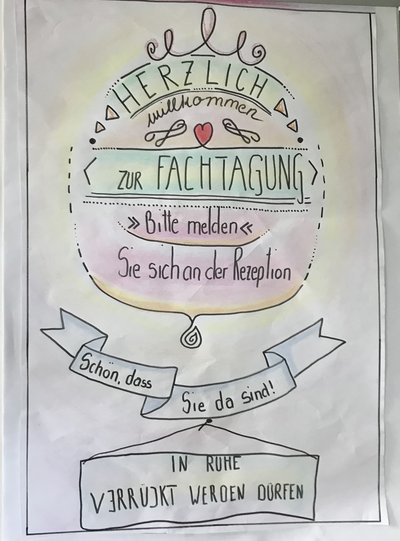 HERZLICH
willkommen
ZUR FACHTAGUNG
» Bitte melden «
Sie sich an der Rezeption
Schön, dass
Sie da sind!
IN RUHE
VERRÜCKT WERDEN DÜRFEN